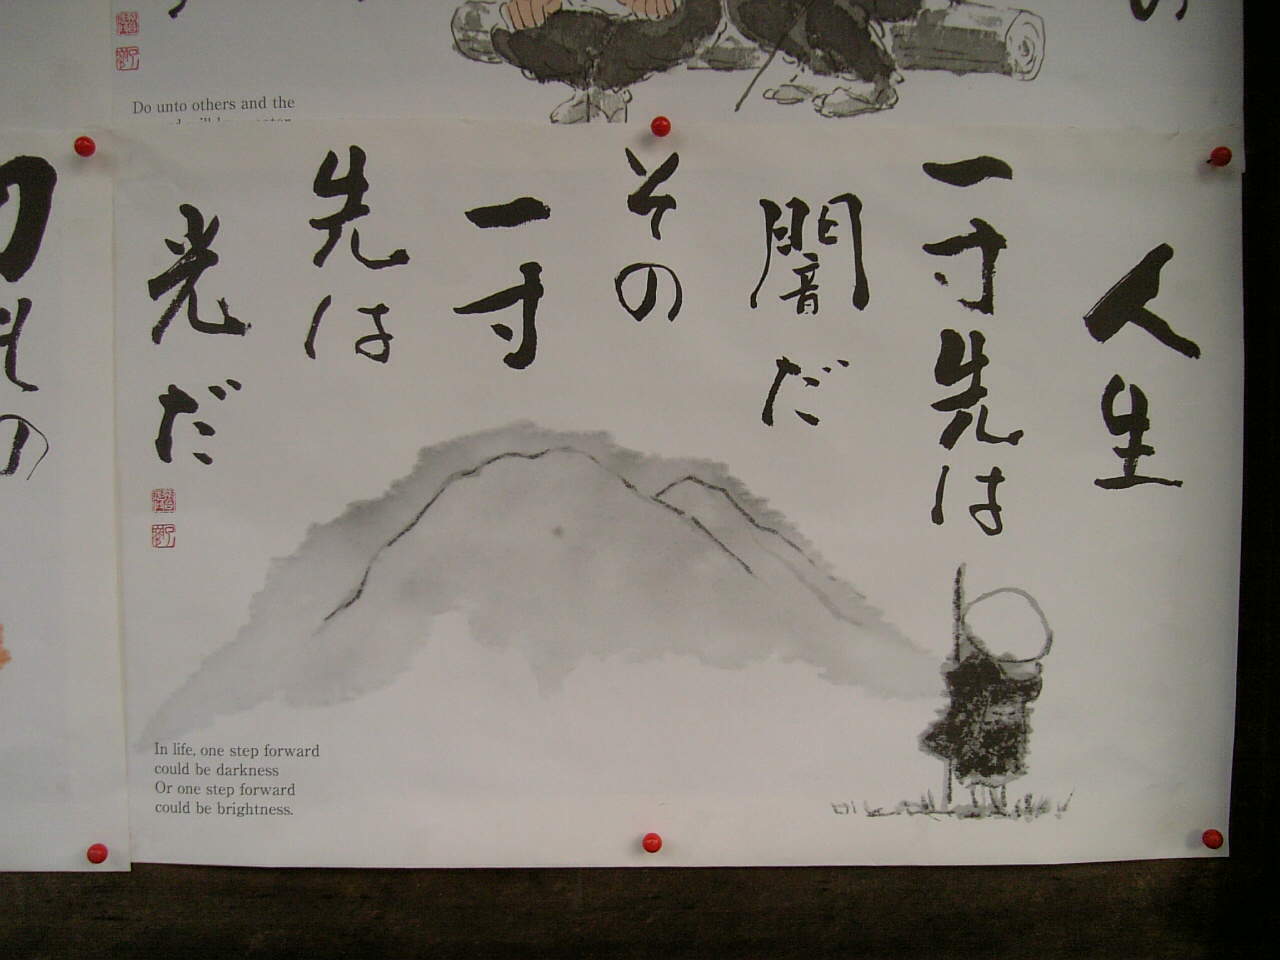 Do unto others and the
人生
一寸先は
闇だ
その
一寸
先は
光だ
In life, one step forward
could be darkness
Or one step forward
could be brightness.
その